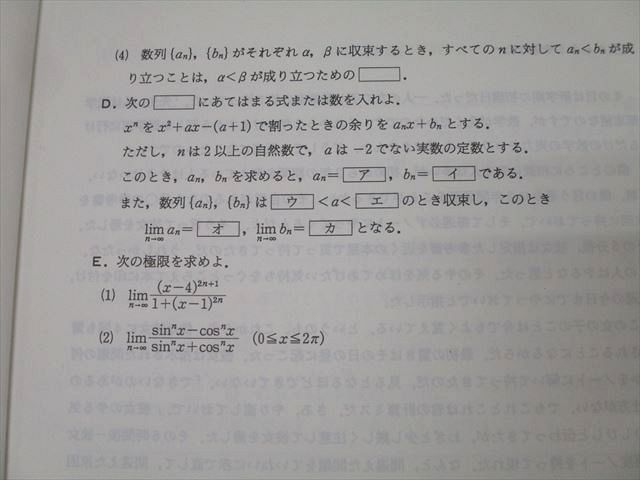 (4) 数列{aₙ}, {bₙ}がそれぞれα, βに収束するとき, すべてのnに対してaₙ<bₙが成
り立つことは, α<βが成り立つための□.
D. 次の□にあてはまる式または数を入れよ.
xⁿをx²+ax-(a+1)で割ったときの余りをaₙx+bₙとする.
ただし, nは2以上の自然数で, aは-2でない実数の定数とする.
このとき, aₙ, bₙを求めると, aₙ=ア, bₙ=イである.
また, 数列{aₙ}, {bₙ}はウ<a<エのとき収束し, このとき
lim n→∞ aₙ=オ, lim n→∞ bₙ=カとなる.
E. 次の極限を求めよ.
(1) lim n→∞ (x-4)²ⁿ⁺¹/1+(x-1)²ⁿ
(2) lim n→∞ sinⁿx-cosⁿx/sinⁿx+cosⁿx (0≦x≦2π)